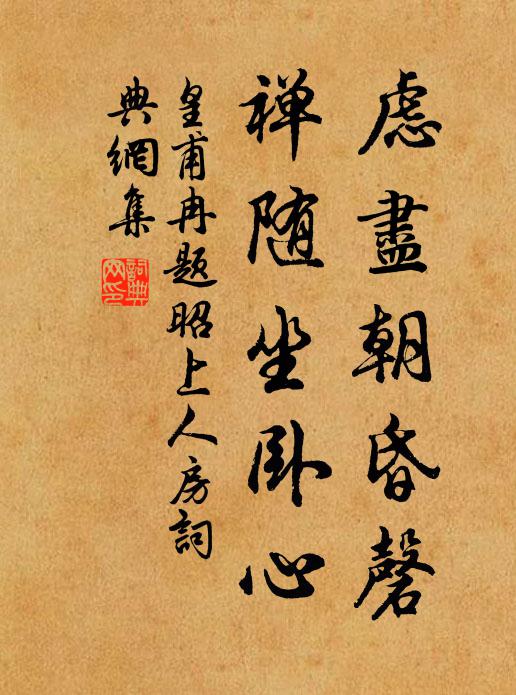 慮盡朝昏磬
禅随坐卧心
皇甫冉題昭上人房詞
典網集
詞典網印